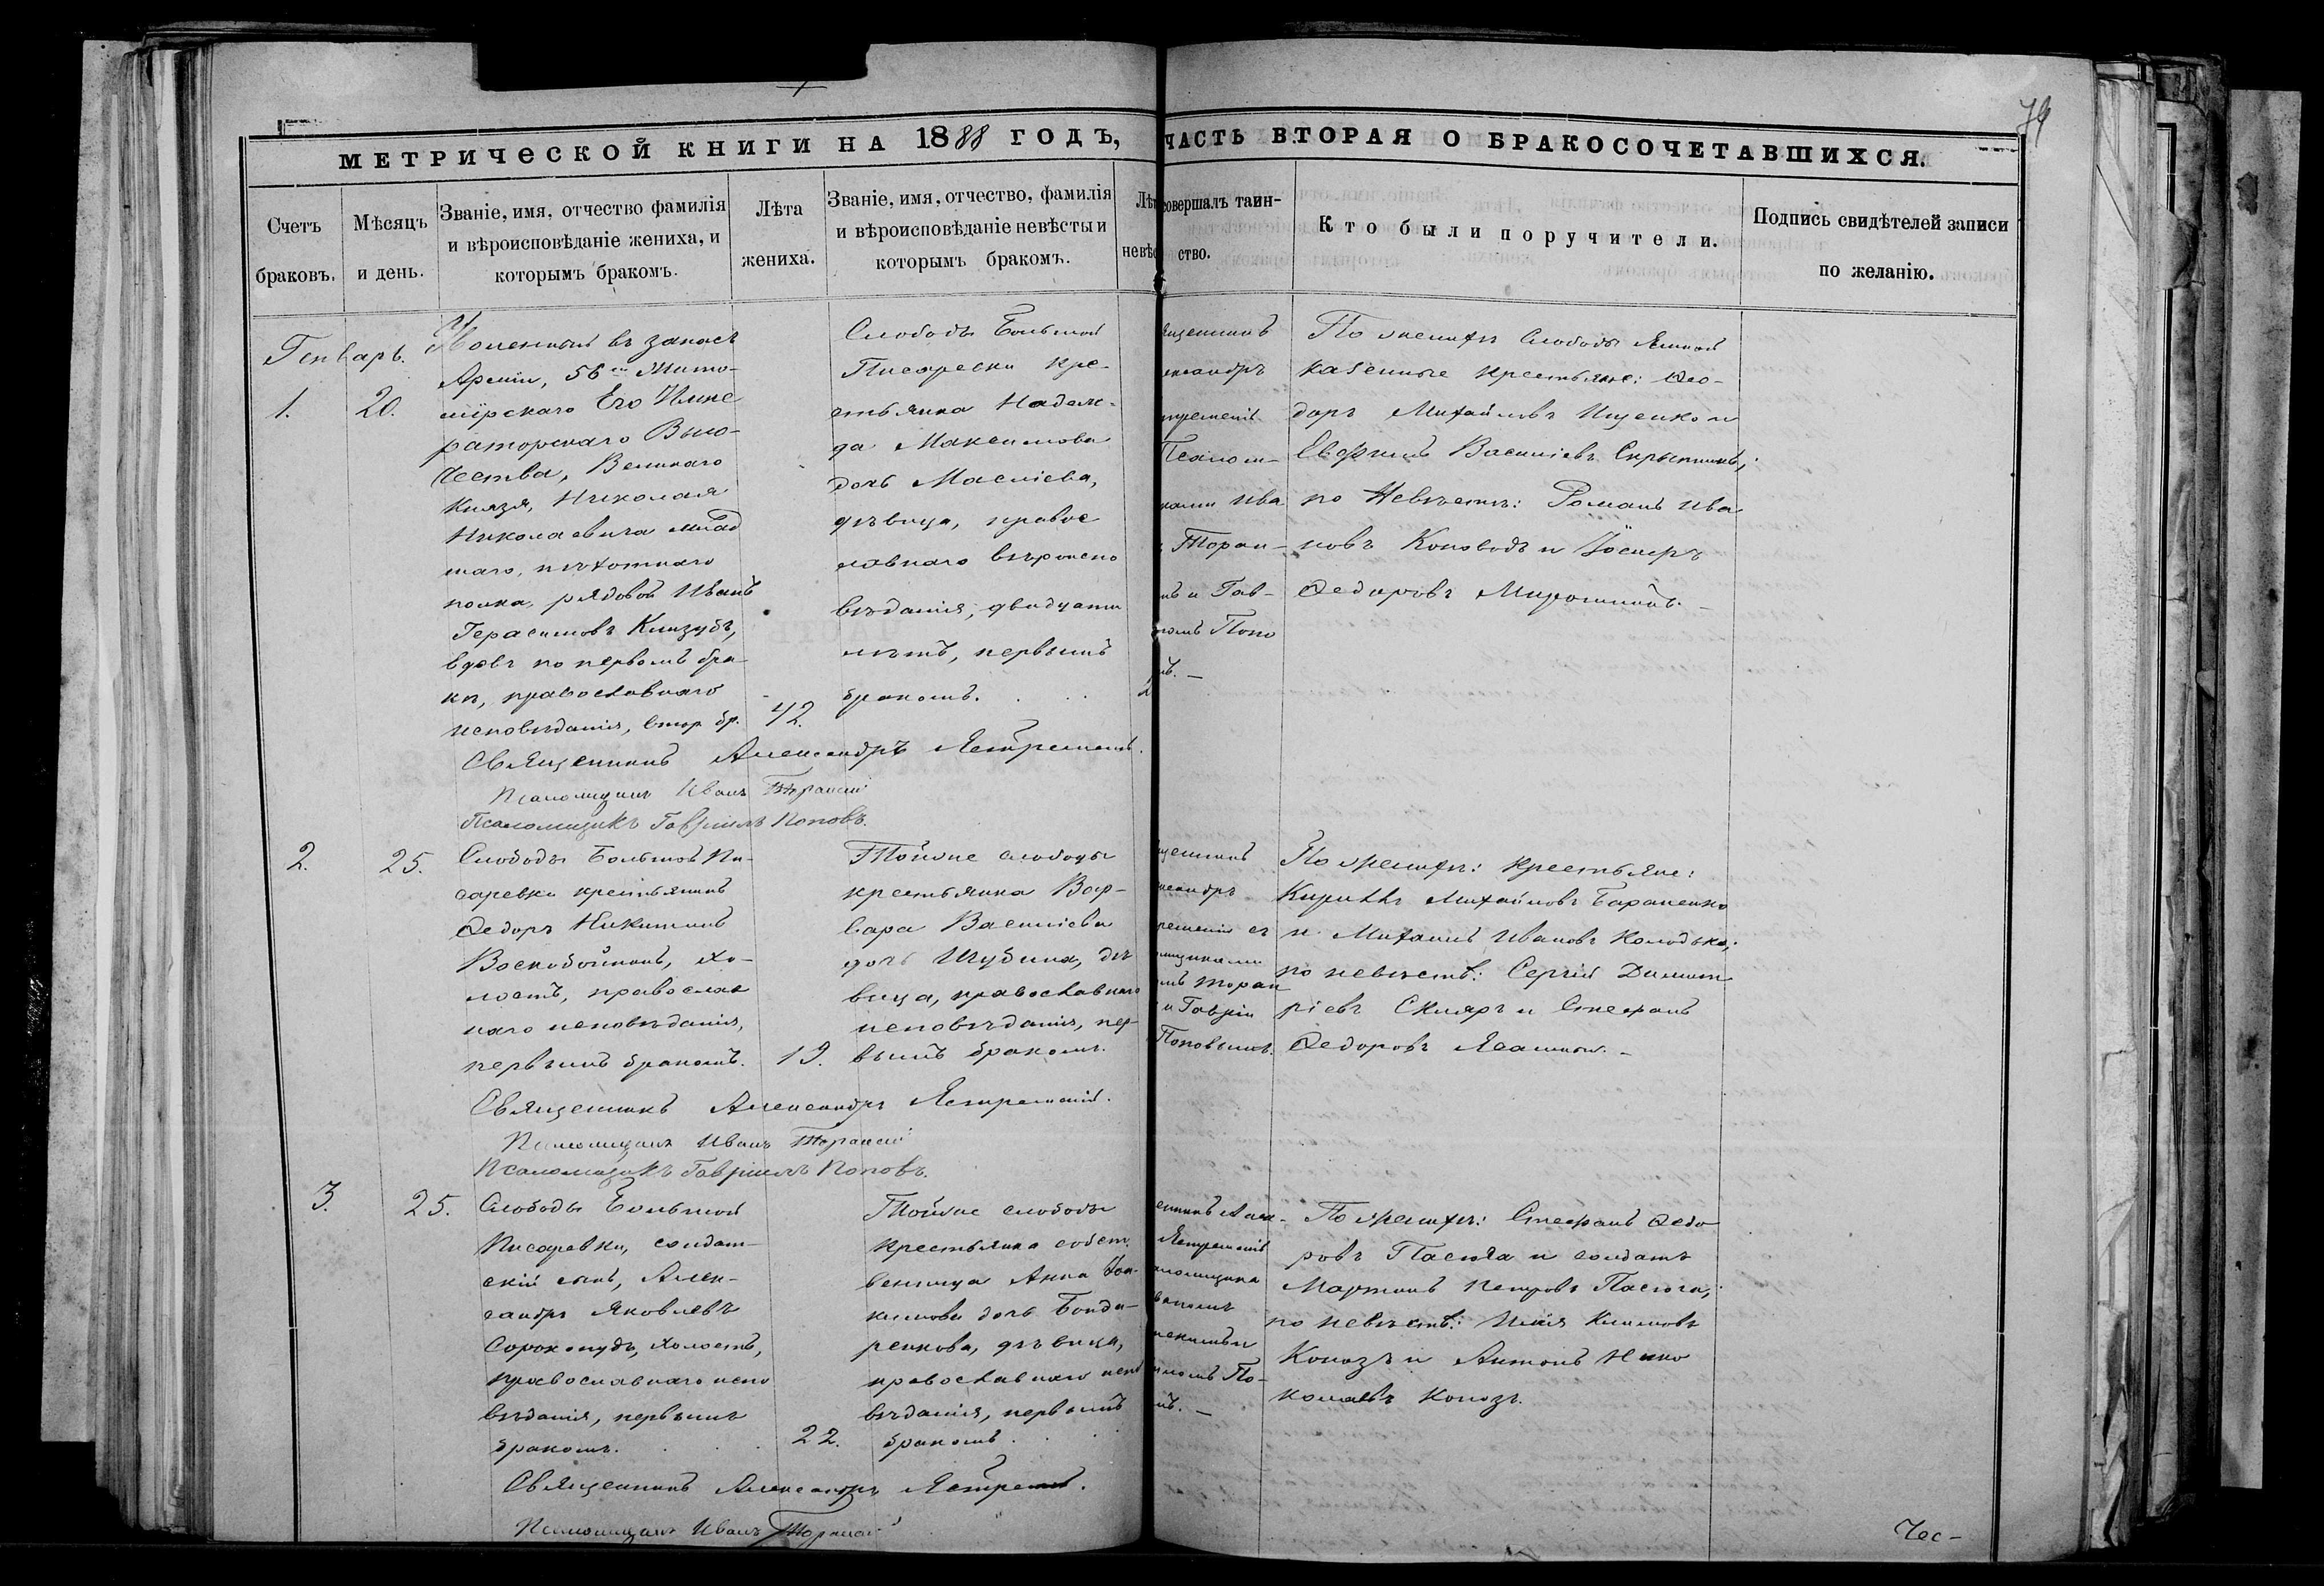 79
МЕТРИЧЕСКОЙ КНИГИ НА 1888 ГОДЪ,
ЧАСТЬ ВТОРАЯ О БРАКОСОЧЕТАВШИХСЯ.
Счетъ браковъ.
Мѣсяцъ и день.
Званіе, имя, отчество фамилія
и вѣроисповѣданіе жениха, и
которымъ бракомъ.
Лѣта
жениха.
Званіе, имя, отчество, фамилія
и вѣроисповѣданіе невѣсты и
которымъ бракомъ.
Лѣт
невѣс
совершалъ таин-
ство.
Кто были поручители.
Подпись свидѣтелей записи
по желанію.
Генварь.
1.
20.
въ запасъ
Арміи, 56го Жито-
мірскаго Его Импе
раторскаго Высо-
чества, Великаго
Князя, Николая
Николаевича млад
шаго, пѣхотнаго
полка, рядовой Иванъ
Герасимовъ Клизубъ,
вдовъ по первомъ бра-
кѣ, православнаго
исповѣданія, втор. бр.
42.
Слободы Большой
Писаревки кре-
стьянка Надеж-
да Максимова
дочь Маслiева,
дѣвица, правос
лавнаго вѣроиспо
вѣданія, двадцати
лѣтъ, первымъ
бракомъ.
2
ященникъ
лександръ
стремскій
Псалом-
ками Ива
Торан-
мъ и Гав-
ломъ Попо
мъ. —
По женихѣ Слободы Ямной
казенные крестьяне: Ѳео-
доръ Михайловъ Ищенко и
Евфимъ Василіевъ Скрыпникъ;
по Невѣстѣ: Романъ Ива
новъ Коноводъ и Іосифъ
Ѳедоровъ Мирошникъ. —
Священникъ Александръ Ястремскій.
Псаломщикъ Иванъ Торанскій
Псаломщикъ Гавріилъ Поповъ.
2.
25.
Слободы Большой Пи-
саревки крестьянинъ
Ѳедоръ Никитинъ
Воскобойникъ, хо-
лостъ, православ
наго исповѣданія,
первымъ бракомъ.
19.
Тойже слободы
крестьянка Вар-
вара Василіева
дочь Шубина, дѣ
вица, православнаго
исповѣданія, пер-
вымъ бракомъ.
щенникъ
лександръ
ремскій съ
мщиками
мъ Торан
и Гавріи
Поповымъ.
По женихѣ: крестьяне:
Кириллъ Михайловъ Бараненко
и Михаилъ Ивановъ Колодько;
по невѣстѣ: Сергій Димит
ріевъ Скляръ и Стефанъ
Ѳедоровъ —
Священникъ Александръ Ястремскій.
Псаломщикъ Иванъ Торанскій
Псаломщикъ Гавріилъ Поповъ.
3.
25.
Слободы Большой
Писаревки, солдат-
скій сынъ, Алек-
сандръ Яковлевъ
Сорокопудъ, холостъ,
православнаго испо
вѣданія, первымъ
бракомъ.
22.
Тойже слободы
крестьянка собст-
венница Анна Іоа-
кимова дочь Бонда-
ренкова, дѣвица,
православнаго испо
вѣданія, первымъ
бракомъ.
енникъ Алек-
Ястремскій
аломщика
ваномъ
нскимъ и
иломъ По-
мъ. —
По женихѣ: Стефанъ Ѳедо
ровъ Пасюга и солдатъ
Мартинъ Петровъ Пасюга;
по невѣстѣ: Илія Климовъ
Коногъ и Антонъ Нико
лаевъ
Священникъ Александръ Ястремскій.
Псаломщикъ Иванъ Торанскій
Чес-